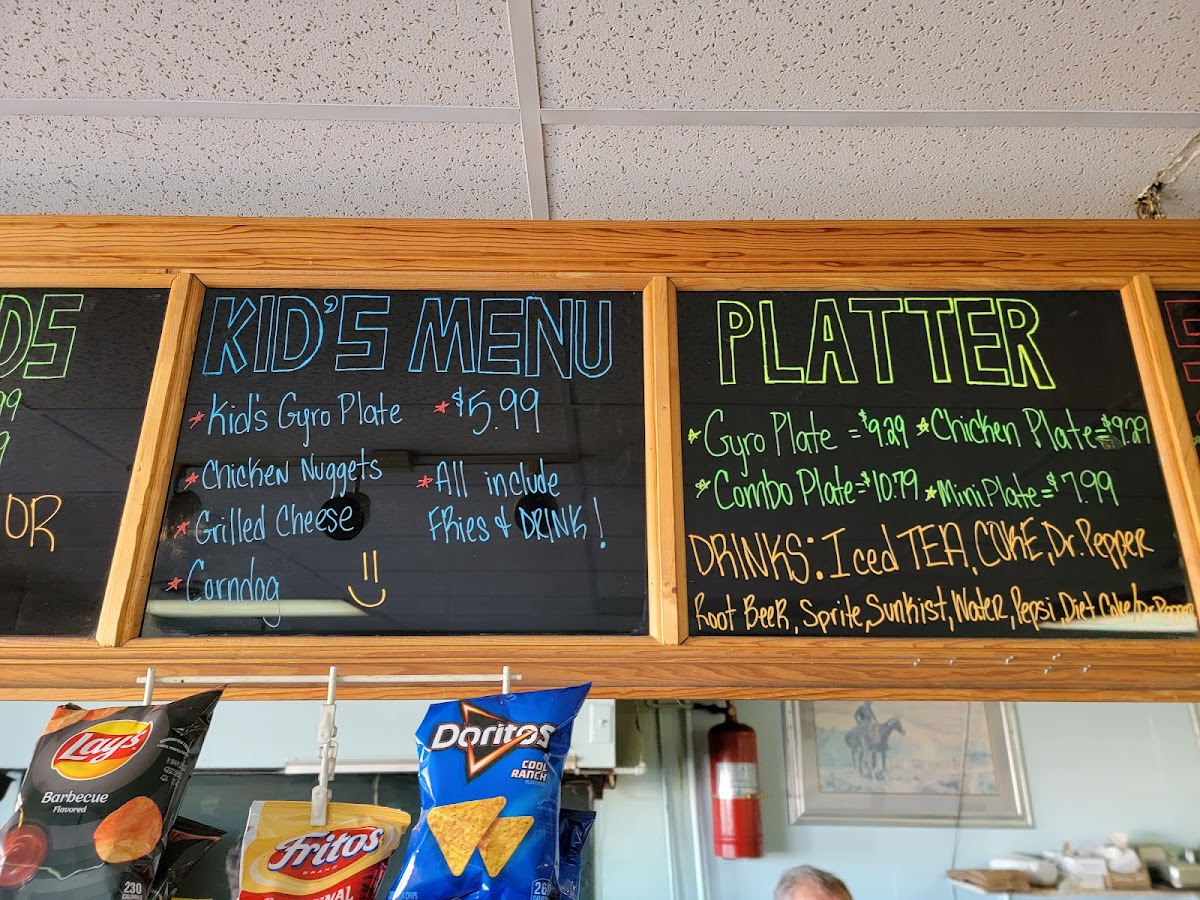 DS
99
9
OR
KID'S MENU
* Kid's Gyro Plate * $5.99
* Chicken Nuggets * All include
* Grilled Cheese Fries & DRINK!
* Corndog
PLATTER
* Gyro Plate = $9.29 * Chicken Plate = $9.29
* Combo Plate = $10.79 * Mini Plate = $7.99
DRINKS: Iced TEA, COKE, Dr. Pepper
Root Beer, Sprite, Sunkist, Water, Pepsi, Diet Coke/Dr. Pepper
Lay's
Barbecue
Flavored
230
Fritos
BRAND
Doritos
COOL
RANCH